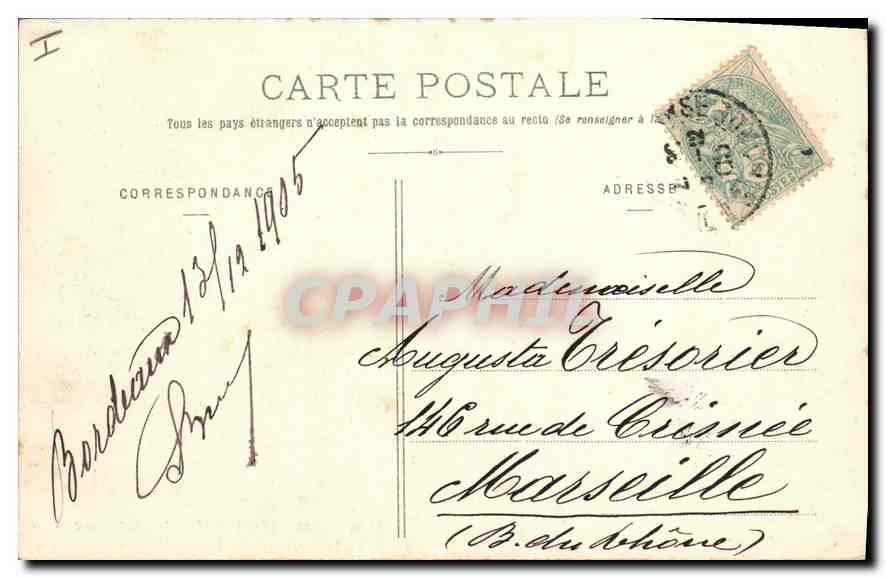 I
CARTE POSTALE
Tous les pays étrangers n'acceptent pas la correspondance au recto (Se renseigner à la
CORRESPONDANCE
ADRESSE
Bordeaux 13/12 1905
CPAPHIL
Mademoiselle
Augusta Trésorier
146 rue de Crimée
Marseille
(B. du Rhône)